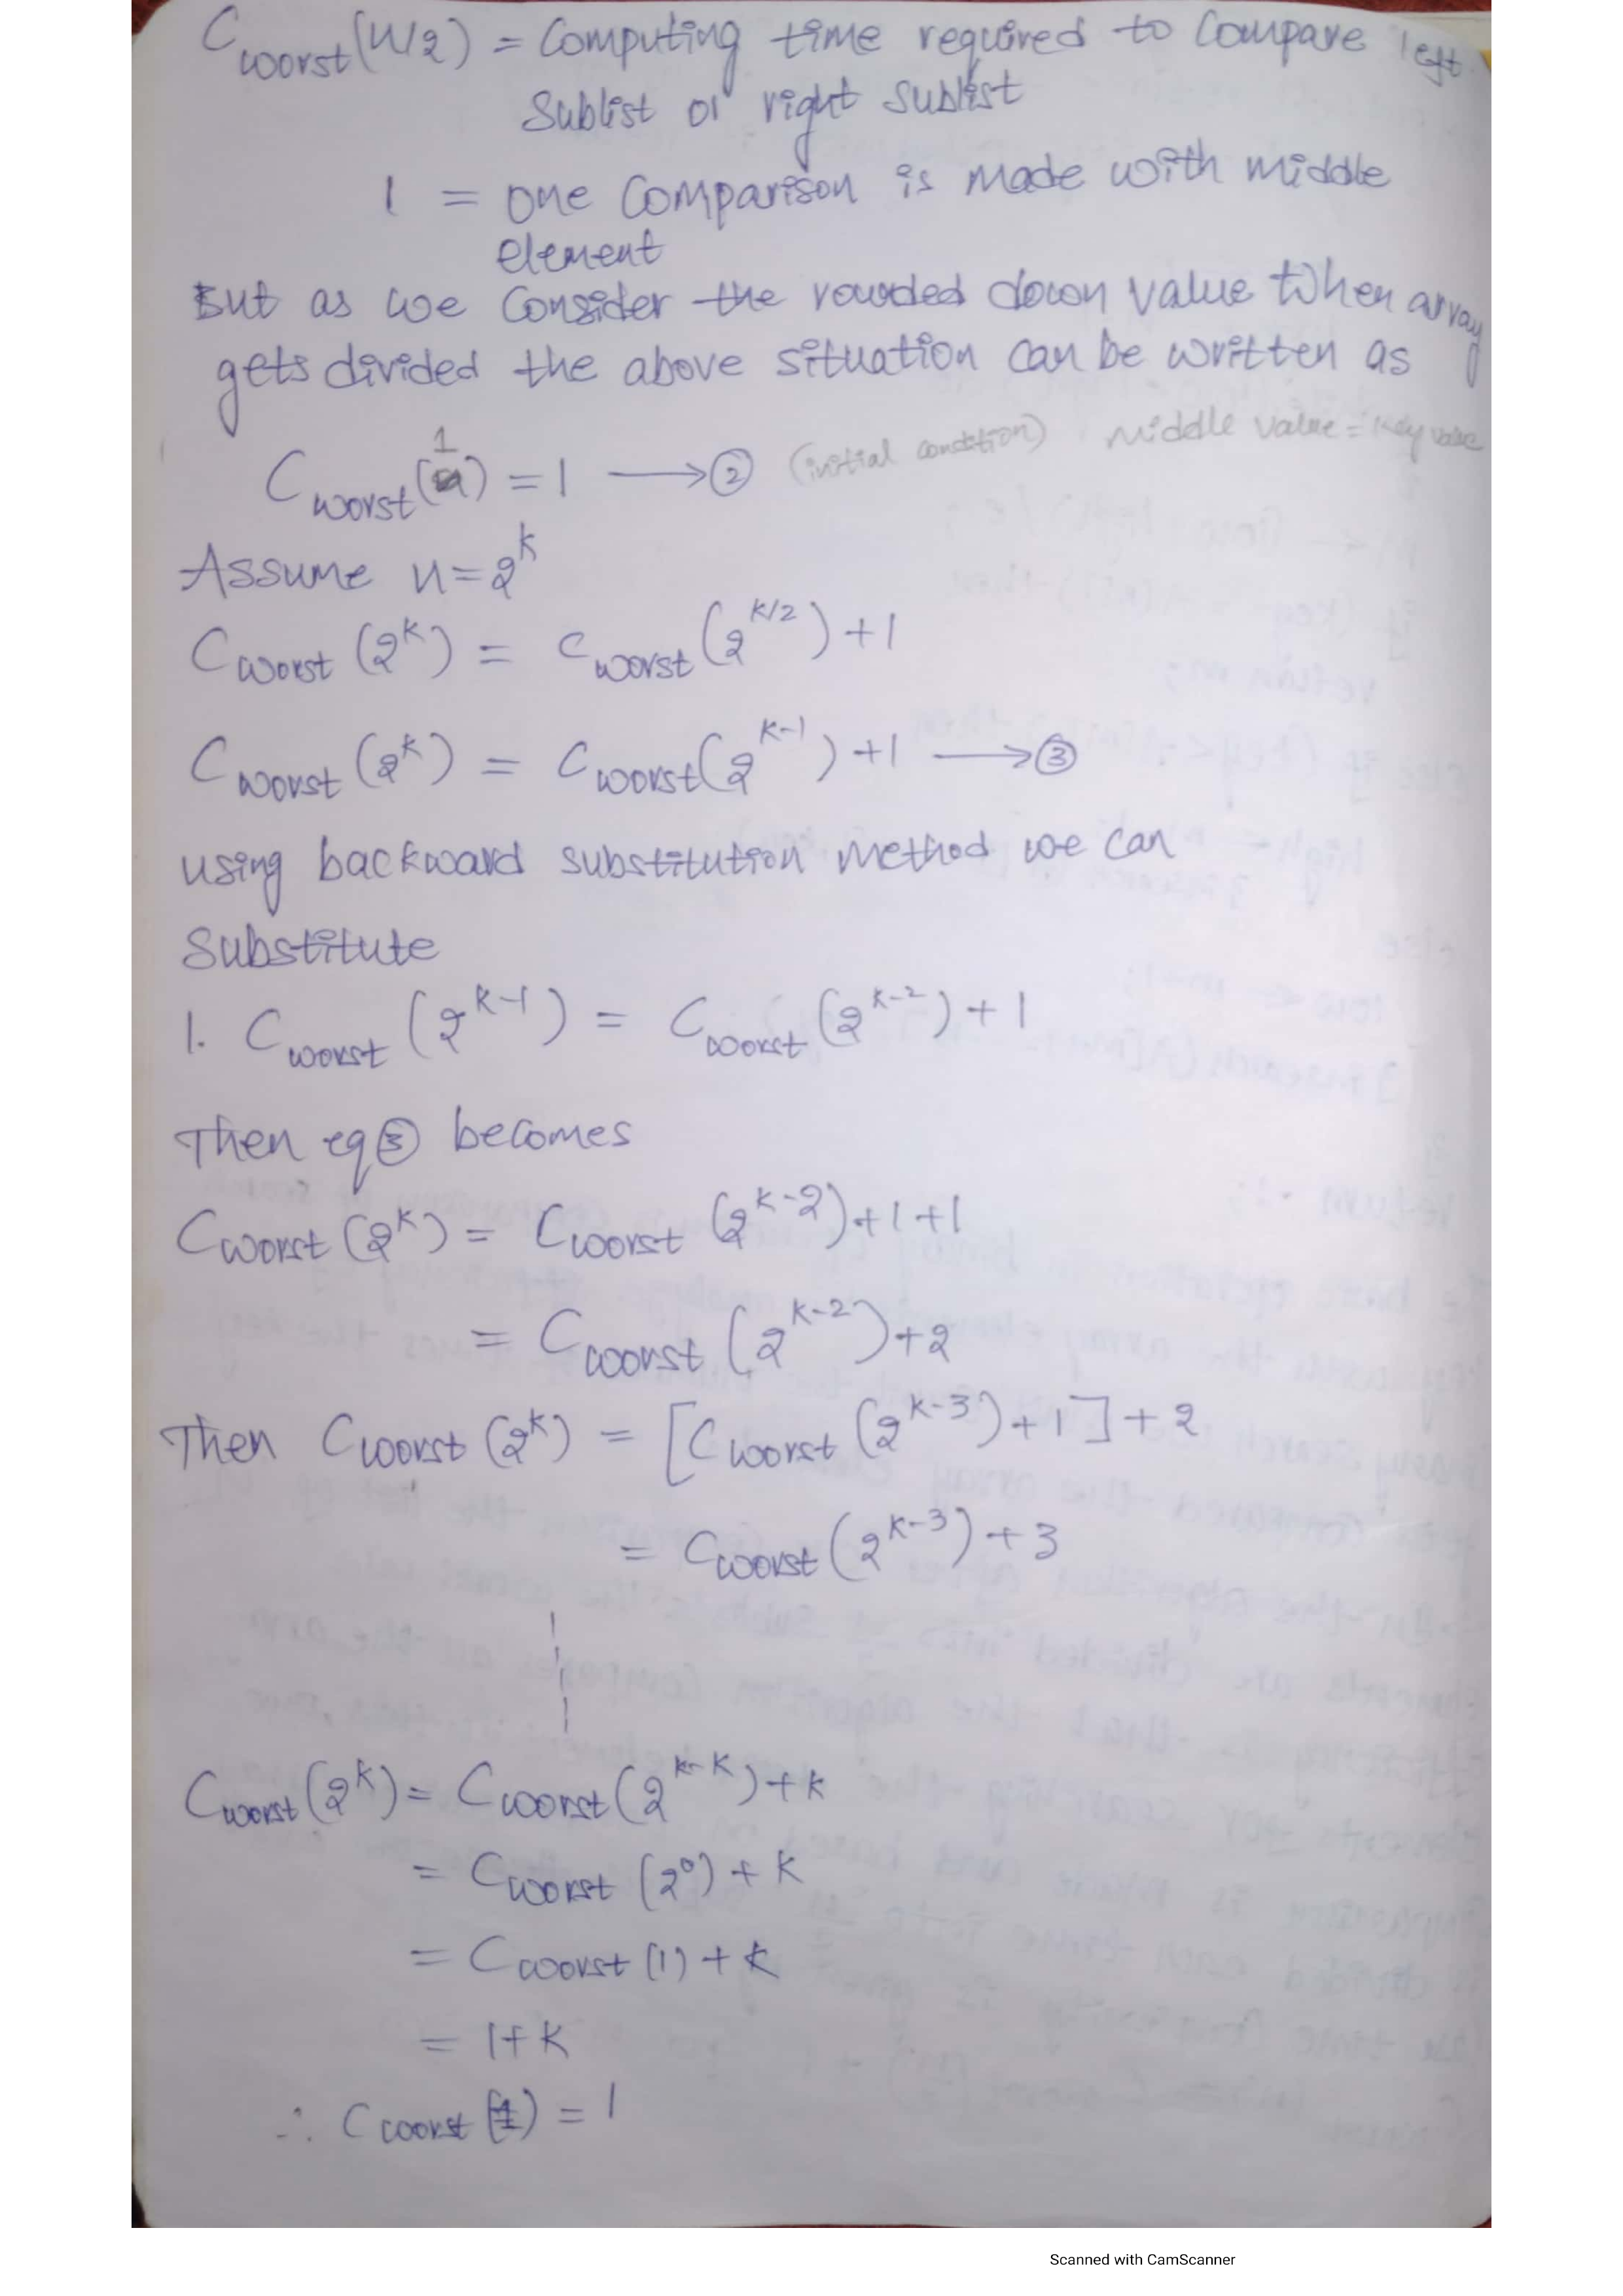 Cworst(n/2) = Computing time required to compare left
Sublist or right sublist
1 = one comparison is made with middle
element
But as we consider the rounded down value when array
gets divided the above situation can be written as
Cworst(1) = 1 → ② (initial condition) middle value = key value
Assume n = 2^k
Cworst (2^k) = Cworst (2^k/2) + 1
Cworst (2^k) = Cworst (2^k-1) + 1 → ③
using backward substitution method we can
Substitute
1. Cworst (2^k-1) = Cworst (2^k-2) + 1
Then eq ③ becomes
Cworst (2^k) = Cworst (2^k-2) + 1 + 1
= Cworst (2^k-2) + 2
Then Cworst (2^k) = [Cworst (2^k-3) + 1] + 2
= Cworst (2^k-3) + 3
Cworst (2^k) = Cworst (2^k-k) + k
= Cworst (2^0) + k
= Cworst (1) + k
= 1 + k
∴ Cworst (1) = 1
Scanned with CamScanner